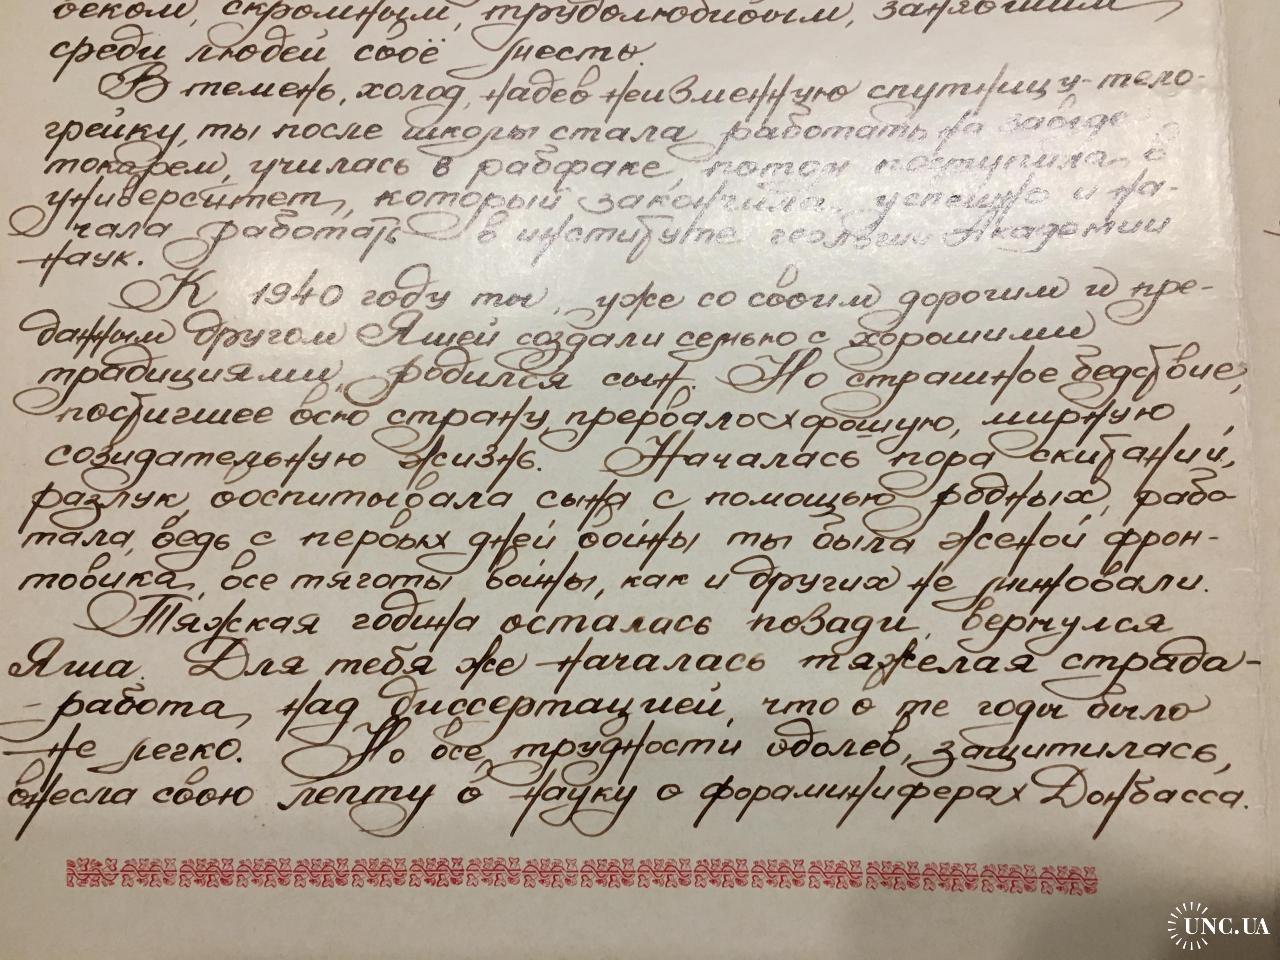 веком, скромным, трудолюбивым, занявшим
среди людей своё место.
В темень, холод, надев неизменную спутницу-тело-
грейку, ты после школы стала работать на заводе
токарем, училась в рабфаке, потом поступила в
университет, который закончила успешно и на-
чала работать в институте геологии Академии
наук.
К 1940 году ты, уже со своим дорогим и пре-
данным другом Яшей создали семью с хорошими
традициями, родился сын. Но страшное бедствие,
постигшее всю страну, прервало хорошую, мирную,
созидательную жизнь. Началась пора скитаний,
разлук, воспитывала сына с помощью родных, рабо-
тала, ведь с первых дней войны ты была женой фрон-
товика, все тяготы войны, как и других не миновали.
Тяжкая година осталась позади, вернулся
Яша. Для тебя же началась тяжелая страда-
- работа над диссертацией, что в те годы было
не легко. Но все, трудности одолев, защитилась,
внесла свою лепту в науку о фораминиферах Донбасса.
UNC.UA